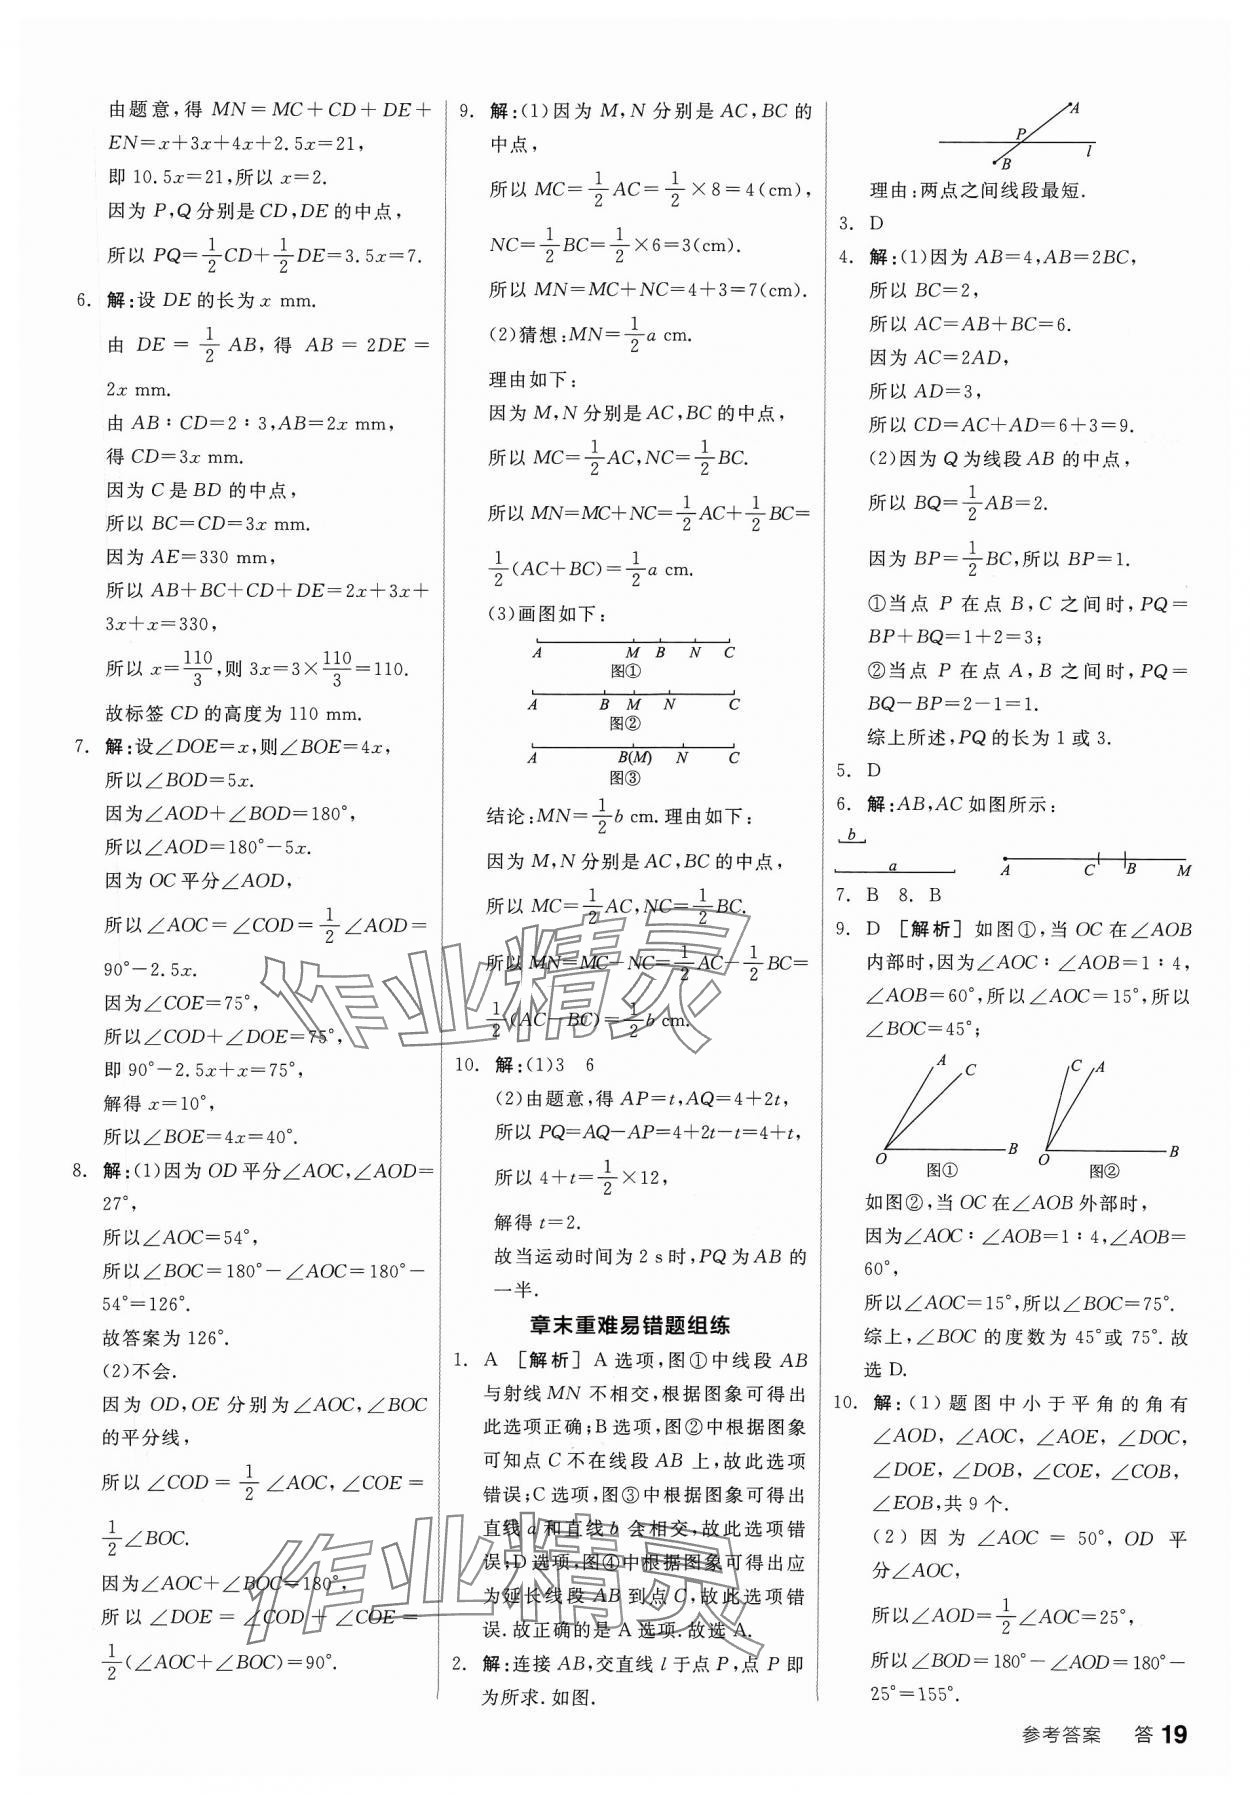 由题意,得 MN=MC+CD+DE+
EN=x+3x+4x+2.5x=21,
即 10.5x=21,所以 x=2.
因为 P,Q分别是CD,DE的中点,
所以 PQ=1/2CD+1/2DE=3.5x=7.
6. 解:设 DE 的长为 x mm.
由 DE = 1/2 AB, 得 AB = 2DE =
2x mm.
由 AB∶CD=2∶3,AB=2x mm,
得 CD=3x mm.
因为 C 是 BD 的中点,
所以 BC=CD=3x mm.
因为 AE=330 mm,
所以 AB+BC+CD+DE=2x+3x+
3x+x=330,
所以 x=110/3,则 3x=3×110/3=110.
故标签 CD 的高度为 110 mm.
7. 解:设∠DOE=x,则∠BOE=4x,
所以∠BOD=5x.
因为∠AOD+∠BOD=180°,
所以∠AOD=180°-5x.
因为 OC 平分∠AOD,
所以∠AOC=∠COD=1/2∠AOD=
90°-2.5x.
因为∠COE=75°,
所以∠COD+∠DOE=75°,
即 90°-2.5x+x=75°,
解得 x=10°,
所以∠BOE=4x=40°.
8. 解:(1)因为 OD 平分∠AOC,∠AOD=
27°,
所以∠AOC=54°,
所以∠BOC=180°-∠AOC=180°-
54°=126°.
故答案为 126°.
(2)不会.
因为 OD,OE 分别为∠AOC,∠BOC
的平分线,
所以 ∠COD = 1/2 ∠AOC, ∠COE =
1/2∠BOC.
因为∠AOC+∠BOC=180°,
所以 ∠DOE = ∠COD + ∠COE =
1/2(∠AOC+∠BOC)=90°.
9. 解:(1)因为 M,N 分别是 AC,BC 的
中点,
所以 MC=1/2AC=1/2×8=4(cm),
NC=1/2BC=1/2×6=3(cm).
所以 MN=MC+NC=4+3=7(cm).
(2)猜想:MN=1/2a cm.
理由如下:
因为 M,N 分别是 AC,BC 的中点,
所以 MC=1/2AC,NC=1/2BC.
所以 MN=MC+NC=1/2AC+1/2BC=
1/2(AC+BC)=1/2a cm.
(3)画图如下:
A M B N C
图①
A B M N C
图②
A B(M) N C
图③
结论:MN=1/2b cm.理由如下:
因为 M,N 分别是 AC,BC 的中点,
所以 MC=1/2AC,NC=1/2BC.
所以 MN=MC-NC=1/2AC-1/2BC=
1/2(AC-BC)=1/2b cm.
10. 解:(1)3 6
(2)由题意,得 AP=t,AQ=4+2t,
所以 PQ=AQ-AP=4+2t-t=4+t,
所以 4+t=1/2×12,
解得 t=2.
故当运动时间为 2 s 时,PQ 为 AB 的
一半.
章末重难易错题组练
1. A [解析] A 选项,图①中线段 AB
与射线 MN 不相交,根据图象可得出
此选项正确;B选项,图②中根据图象
可知点 C 不在线段 AB 上,故此选项
错误;C选项,图③中根据图象可得出
直线a和直线b会相交,故此选项错
误;D选项,图④中根据图象可得出应
为延长线段 AB 到点 C,故此选项错
误.故正确的是 A 选项.故选 A.
2. 解:连接 AB,交直线 l 于点 P,点 P 即
为所求.如图.
A
P
B
l
理由:两点之间线段最短.
3. D
4. 解:(1)因为 AB=4,AB=2BC,
所以 BC=2,
所以 AC=AB+BC=6.
因为 AC=2AD,
所以 AD=3,
所以 CD=AC+AD=6+3=9.
(2)因为 Q 为线段 AB 的中点,
所以 BQ=1/2AB=2.
因为 BP=1/2BC,所以 BP=1.
①当点 P 在点 B,C 之间时,PQ=
BP+BQ=1+2=3;
②当点 P 在点 A,B 之间时,PQ=
BQ-BP=2-1=1.
综上所述,PQ 的长为 1 或 3.
5. D
6. 解:AB,AC 如图所示:
b
a
A C B M
7. B 8. B
9. D [解析] 如图①,当 OC 在∠AOB
内部时,因为∠AOC∶∠AOB=1∶4,
∠AOB=60°,所以∠AOC=15°,所以
∠BOC=45°;
A C O B 图①
C A O B 图②
如图②,当 OC 在∠AOB 外部时,
因为∠AOC∶∠AOB=1∶4,∠AOB=
60°,
所以∠AOC=15°,所以∠BOC=75°.
综上,∠BOC 的度数为 45°或 75°.故
选 D.
10. 解:(1)题图中小于平角的角有
∠AOD, ∠AOC, ∠AOE, ∠DOC,
∠DOE, ∠DOB, ∠COE, ∠COB,
∠EOB,共 9 个.
(2)因为 ∠AOC = 50°, OD 平
分∠AOC,
所以∠AOD=1/2∠AOC=25°,
所以∠BOD=180°-∠AOD=180°-
25°=155°.
参考答案 答 19
作业精灵
作业精灵